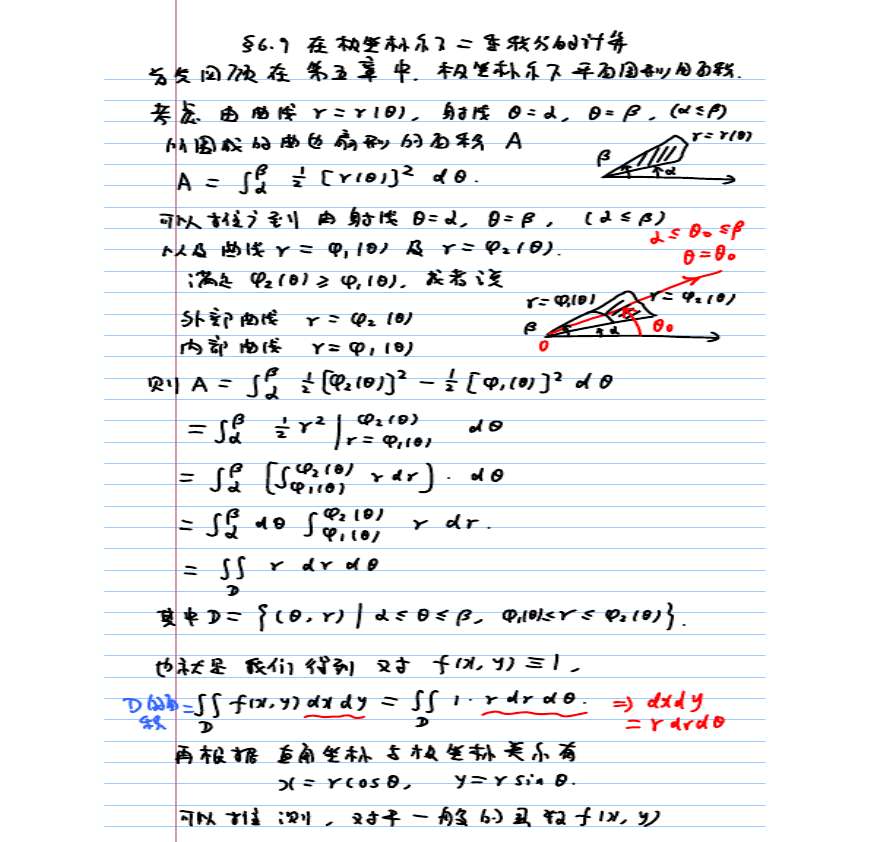 §6.9 在极坐标系下二重积分的计算
首先回顾在第五章中,极坐标系下平面图形的面积.
考虑由曲线 r = r(θ), 射线 θ = α, θ = β, (α ≤ β)
所围成的曲边扇形的面积 A
r = r(θ)
β
α
A = ∫_α^β 1/2 [r(θ)]² dθ.
可以推广到由射线 θ = α, θ = β, (α ≤ β)
以及曲线 r = φ₁(θ) 及 r = φ₂(θ).
α ≤ θ₀ ≤ β
θ = θ₀
满足 φ₂(θ) ≥ φ₁(θ), 或者说
r = φ₁(θ)
r = φ₂(θ)
外部曲线 r = φ₂(θ)
β
α
θ₀
0
内部曲线 r = φ₁(θ)
则 A = ∫_α^β 1/2 [φ₂(θ)]² − 1/2 [φ₁(θ)]² dθ
= ∫_α^β 1/2 r² |_{r = φ₁(θ)}^{φ₂(θ)} dθ
= ∫_α^β [∫_{φ₁(θ)}^{φ₂(θ)} r dr] · dθ
= ∫_α^β dθ ∫_{φ₁(θ)}^{φ₂(θ)} r dr.
= ∬_D r dr dθ
其中 D = {(θ, r) | α ≤ θ ≤ β, φ₁(θ) ≤ r ≤ φ₂(θ)}.
也就是我们得到 对于 f(x, y) ≡ 1,
D的面积 = ∬_D f(x, y) dx dy = ∬_D 1 · r dr dθ. ⇒ dxdy = r dr dθ
再根据直角坐标与极坐标关系有
x = r cos θ, y = r sin θ.
可以推测, 对于一般的函数 f(x, y)